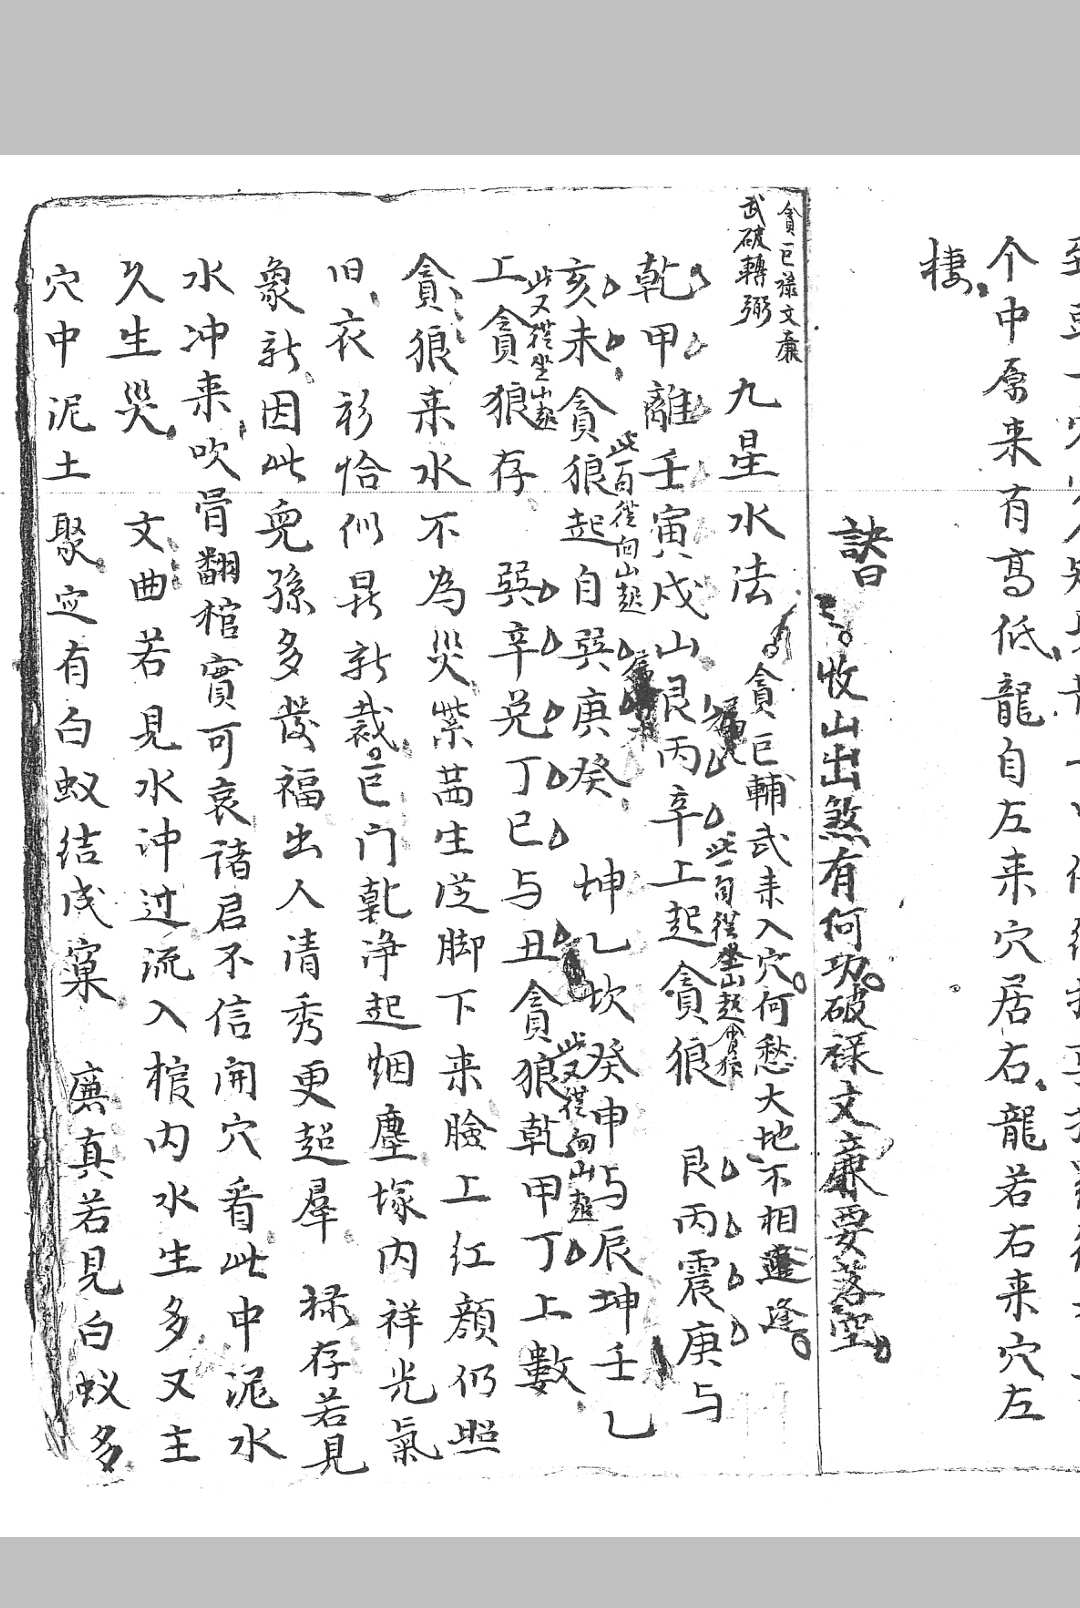 个中原来有高低龍自左来穴居右龍若右来穴左
棲
訣曰
收山出煞有何功破禄文廉要落空
貪巨禄文廉
武破轉弼
九星水法
貪巨輔武来入穴何愁大地不相逢
乾甲離壬寅戌山艮丙辛上起貪狼
此一句從坐山起貪狼
艮丙震庚与
亥未貪狼起自巽庚癸
此百從向山起
坤乙坎癸申与辰坤壬乙
上貪狼存
此又從坐山起
巽辛兑丁巳与丑貪狼乾甲丁上數
此又從向山起
貪狼来水不為災紫茜生從脚下来臉上红顔仍照
旧衣衫恰似昃新裁巨门乾净起烟塵塚内祥光氣
象新因此兒孫多發福出人清秀更超羣 禄存若見
水冲来吹骨翻棺實可哀诸君不信開穴看此中泥水
久生災 文曲若見水冲过流入棺内水生多又主
穴中泥土聚定有白蚁结成窠 廉真若見白蚁多